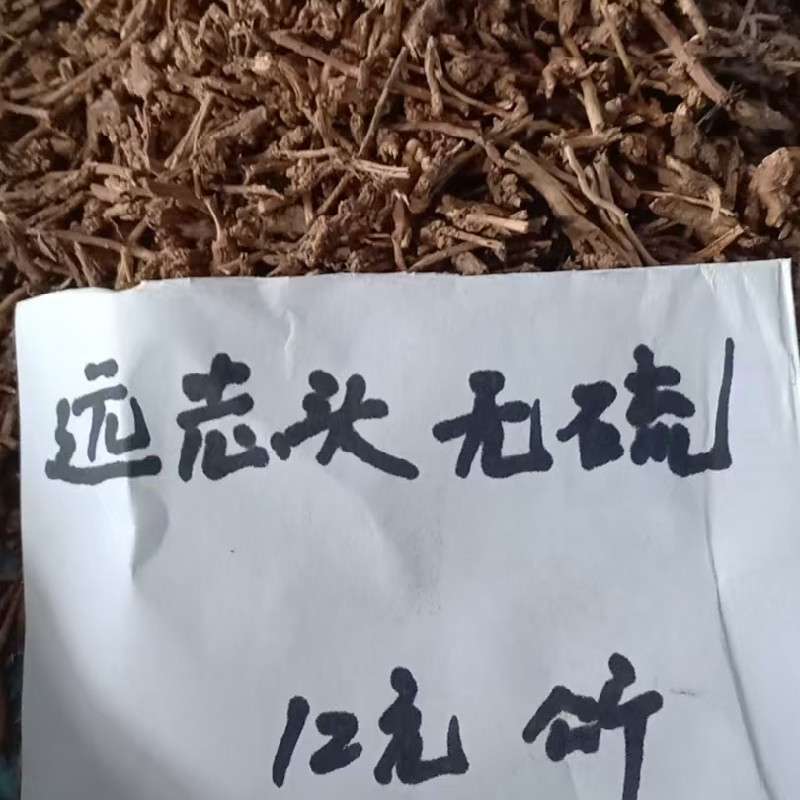 远志头 无硫
12元 斤